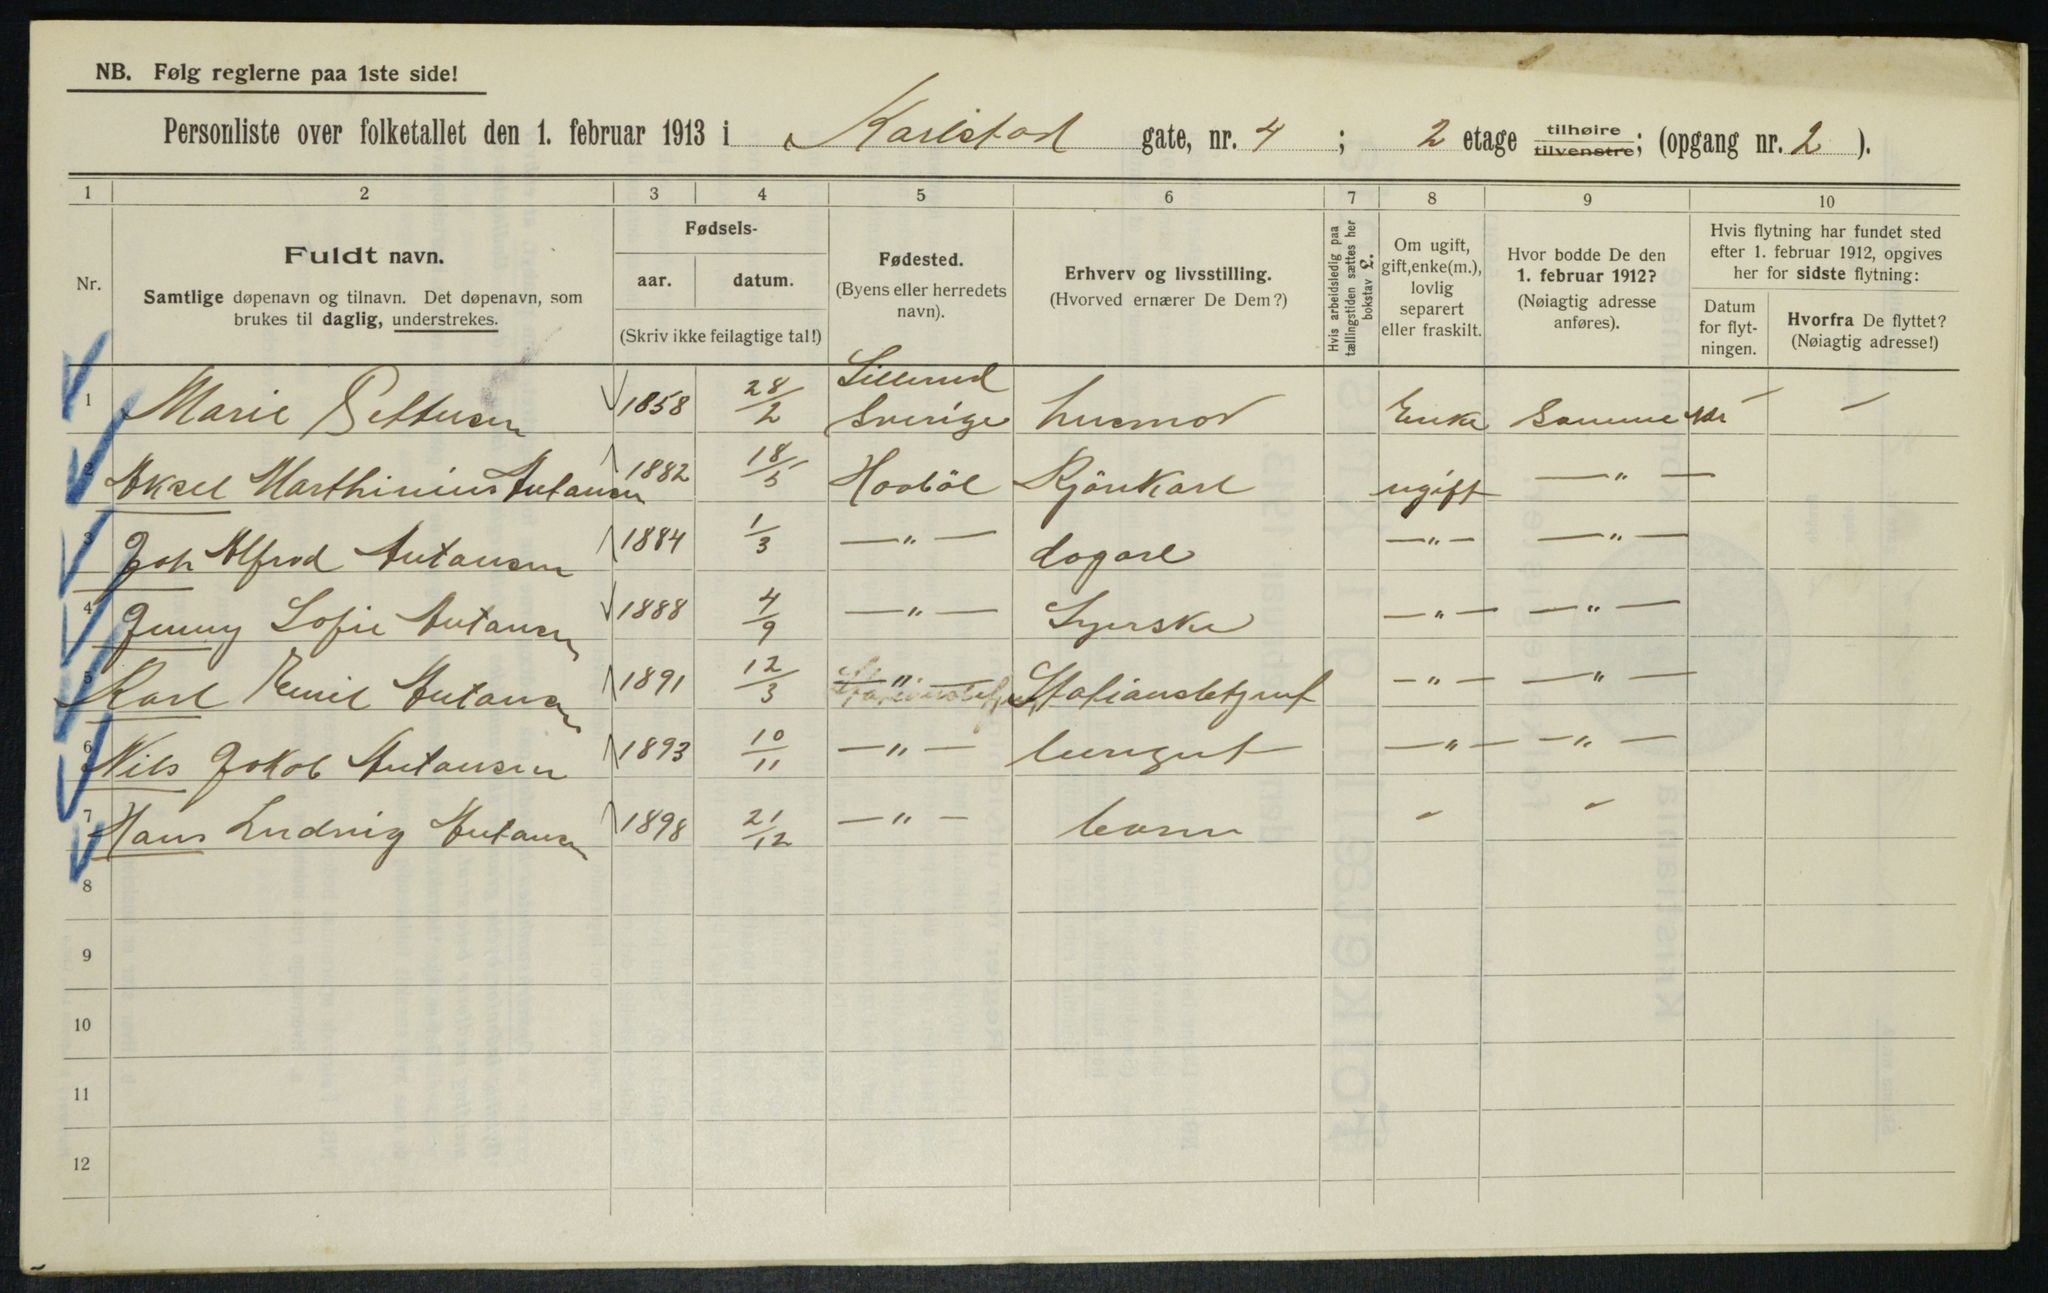 NB. Følg reglerne paa 1ste side!
Personliste over folketallet den 1. februar 1913 i Karlstad gate, nr. 4 ; 2 etage tilhøire tilvenstre; (opgang nr. 2 ).
1 2 3 4 5 6 7 8 9 10
Nr.
Fuldt navn.
Samtlige døpenavn og tilnavn. Det døpenavn, som
brukes til daglig, understrekes.
Fødsels-
aar. datum.
(Skriv ikke feilagtige tal!)
Fødested.
(Byens eller herredets
navn).
Erhverv og livsstilling.
(Hvorved ernærer De Dem?)
Hvis arbeidsledig paa
tællingstiden sættes her
bokstav L.
Om ugift,
gift, enke(m.),
lovlig
separert
eller fraskilt.
Hvor bodde De den
1. februar 1912?
(Nøiagtig adresse
anføres).
Hvis flytning har fundet sted
efter 1. februar 1912, opgives
her for sidste flytning:
Datum
for flyt-
ningen.
Hvorfra De flyttet?
(Nøiagtig adresse!)
Lillerud
1 Marie Pettersen 1858 28/2 Sverige husmor Enke Samme — —
2 Aksel Marthinius Antonsen 1882 18/5 Hobøl Kjörekarl ugift — " —
3 Joh Alfred Antonsen 1884 1/3 — " — — " — — " —
4 Jenny Sofie Antonsen 1888 4/9 — " — Syerske — " — — " —
5 Karl Emil Antonsen 1891 12/3 — " — Stationsbetjent — " — — " —
6 Nils Jakob Antonsen 1893 10/11 — " — — " — — " —
7 Hans Ludvig Antonsen 1898 21/12 — " — barn - -
8
9
10
11
12